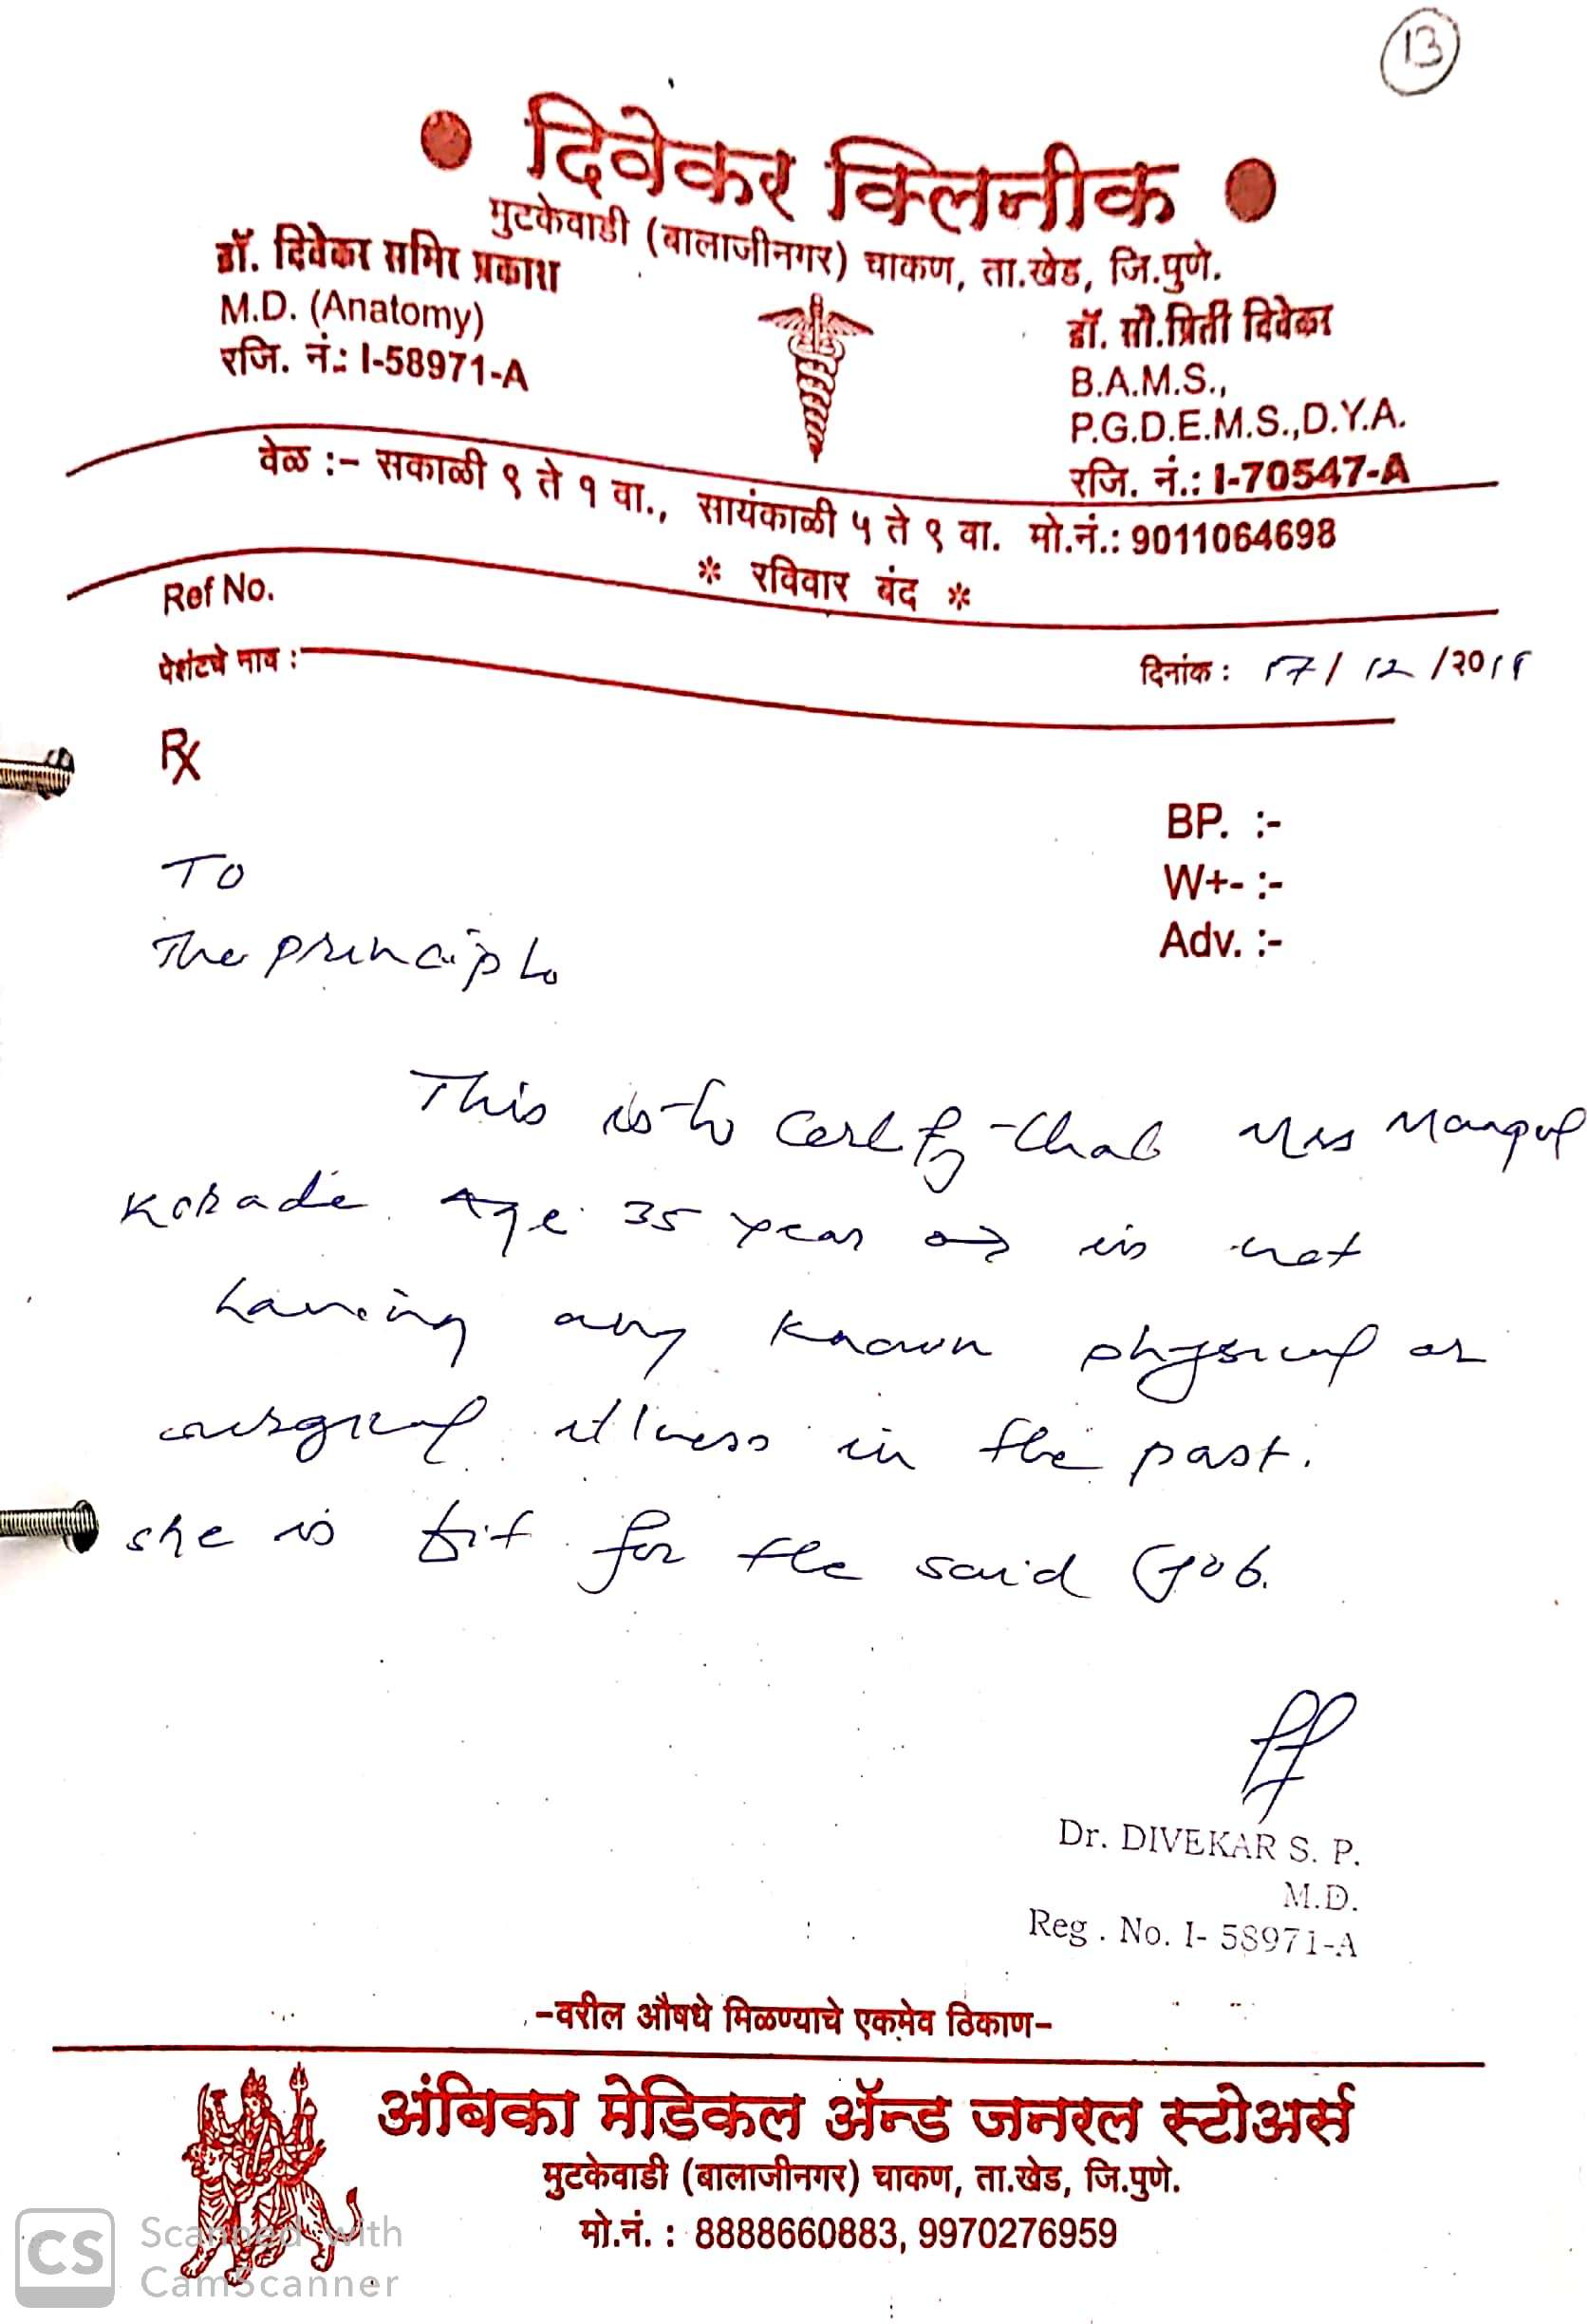 13
दिवेकर क्लिनीक
मुटकेवाडी (बालाजीनगर) चाकण, ता.खेड, जि.पुणे.
डॉ. दिवेकर समिर प्रकाश
M.D. (Anatomy)
रजि. नं.: I-58971-A
डॉ. सौ.प्रिती दिवेकर
B.A.M.S.,
P.G.D.E.M.S.,D.Y.A.
रजि. नं.: I-70547-A
वेळ :- सकाळी ९ ते १ वा., सायंकाळी ५ ते ९ वा. मो.नं.: 9011064698
* रविवार बंद *
Ref No.
पेशंटचे नाव :
दिनांक : 17/12/201
Rx
BP. :-
W+- :-
Adv. :-
To
The principle
This is to certify that Mrs Mangal
Karade Age 35 year is not
having any known physical or
surgical illness in the past.
she is fit for the said Job.
Dr. DIVEKAR S. P.
M.D.
Reg. No. I-58971-A
-वरील औषधे मिळण्याचे एकमेव ठिकाण-
अंबिका मेडिकल ॲन्ड जनरल स्टोअर्स
मुटकेवाडी (बालाजीनगर) चाकण, ता.खेड, जि.पुणे.
मो.नं. : 8888660883, 9970276959
CS Scanned with
CamScanner